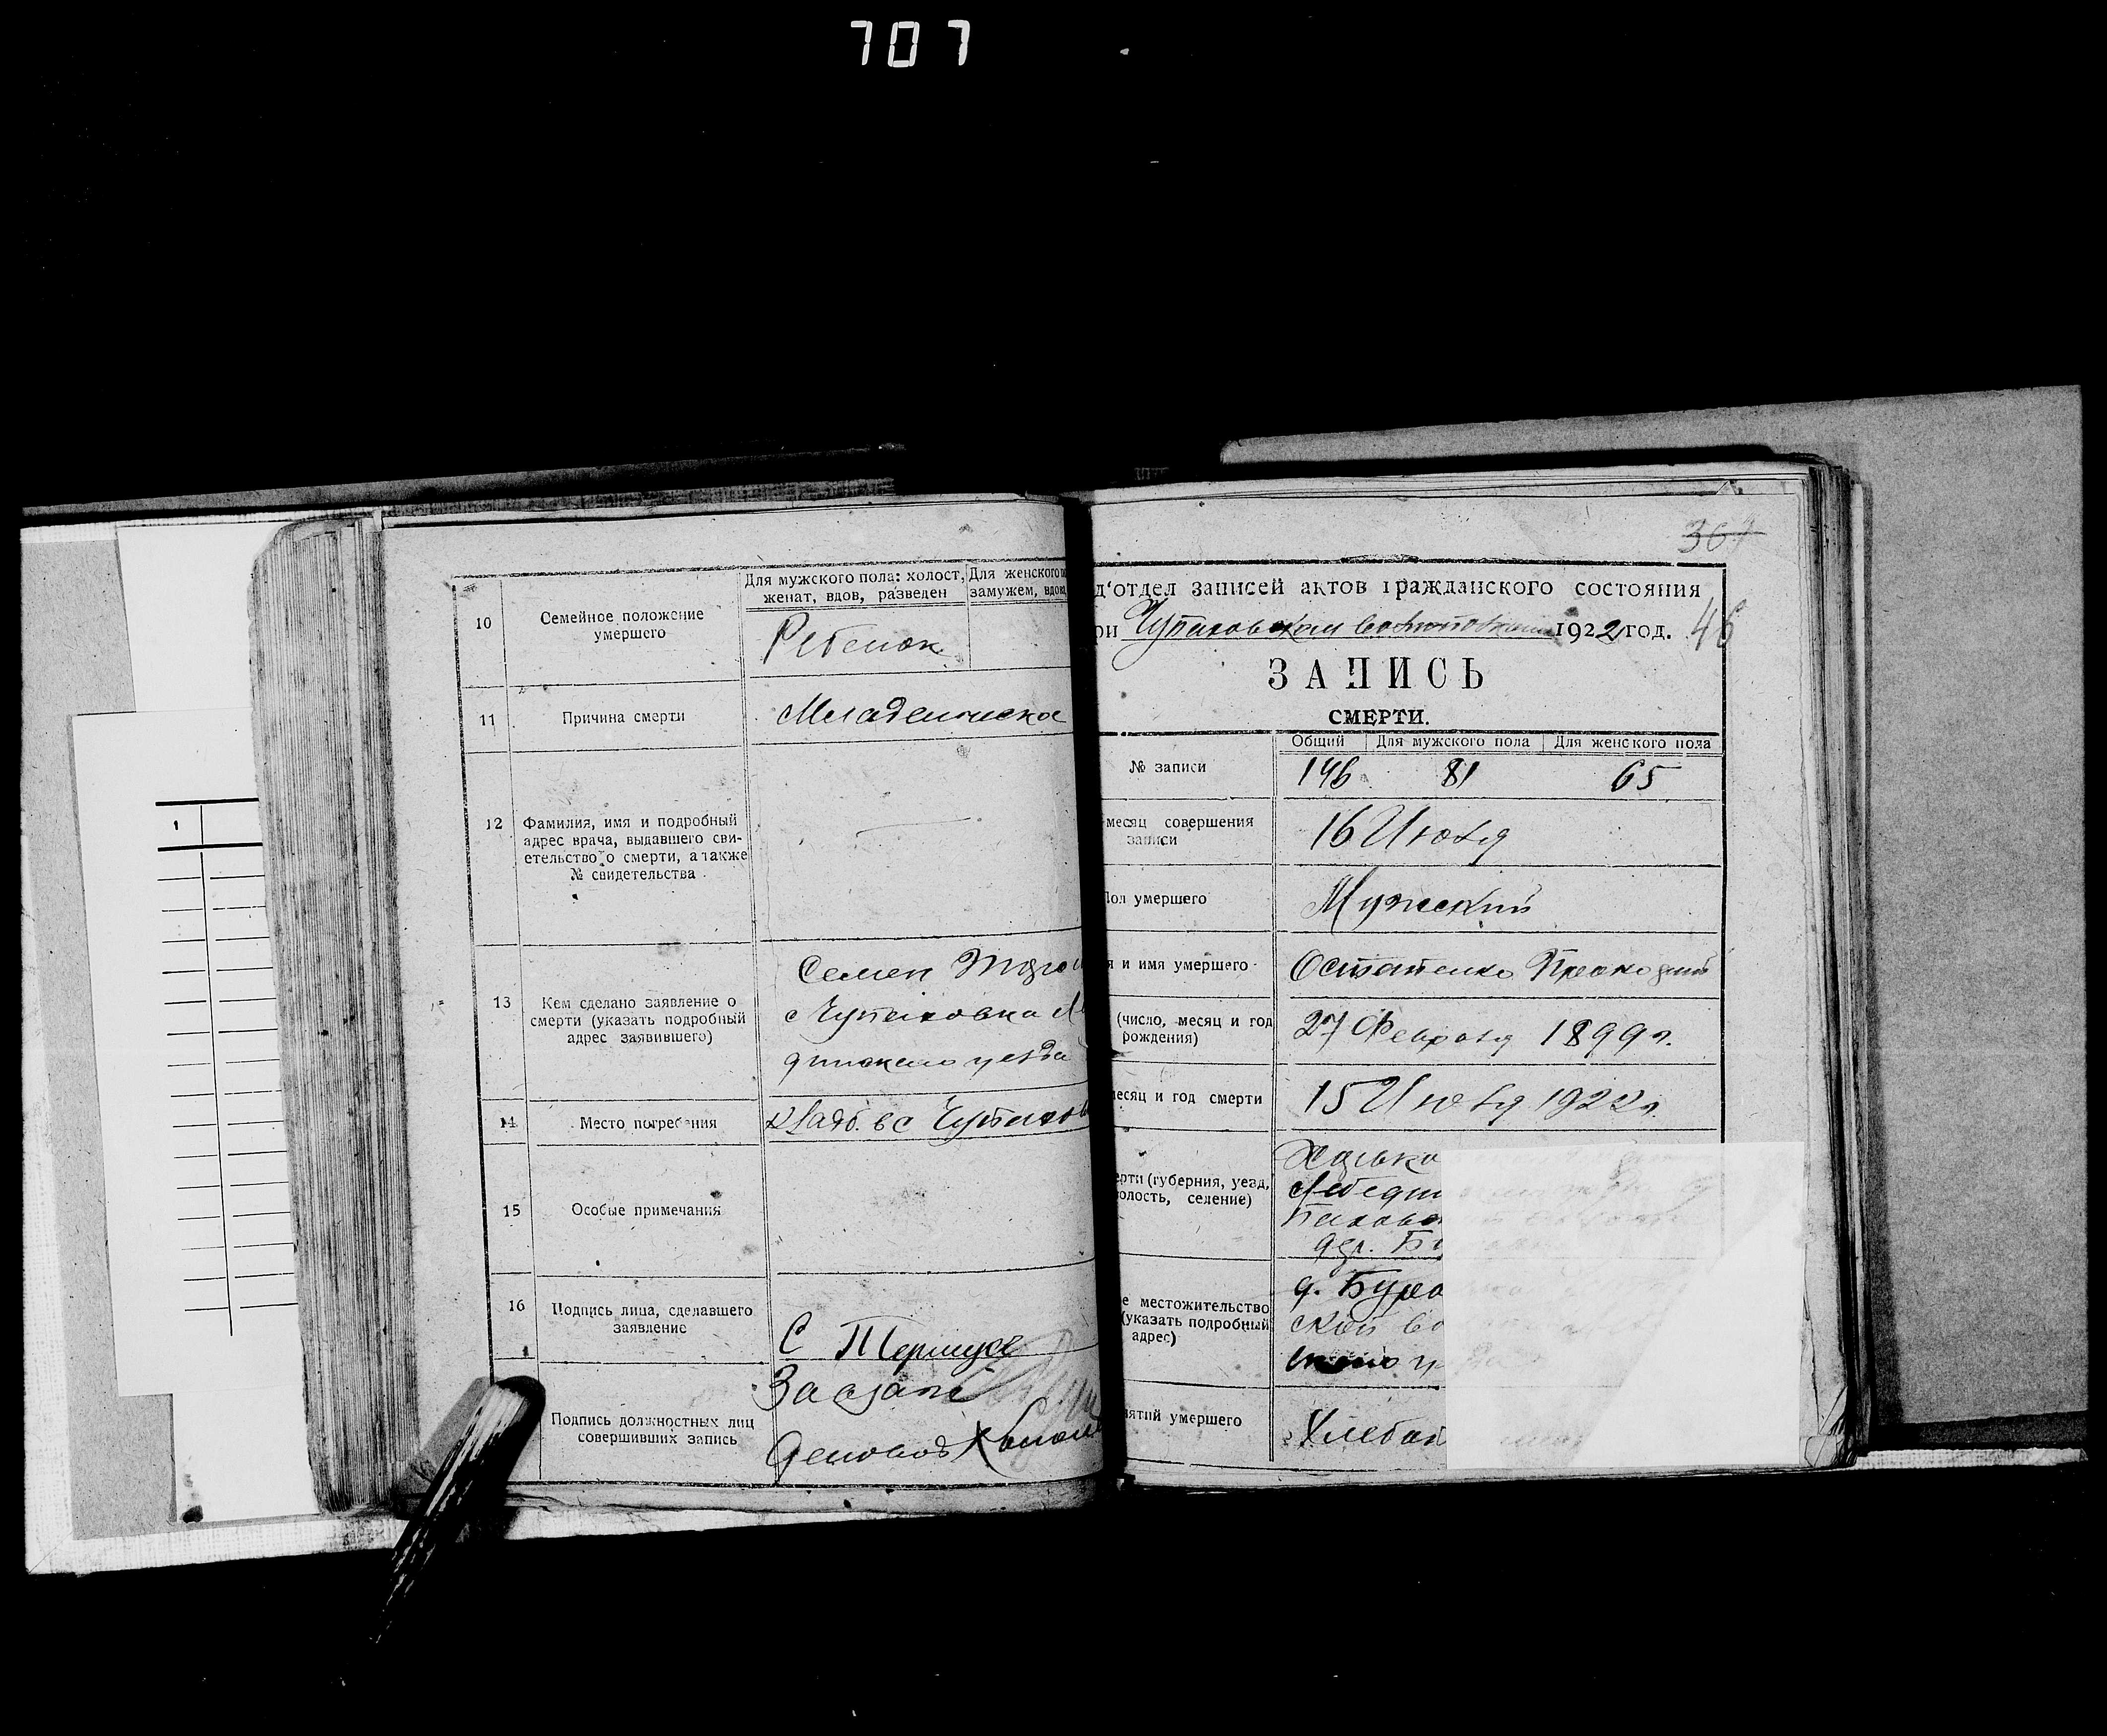 707
10
Семейное положение
умершего
Для мужского пола: холост,
женат, вдов, разведен
Для женского
замужем,
Ребенок
11
Причина смерти
Младенческое
12
Фамилия, имя и подробный
адрес врача, выдавшего сви-
етельство о смерти, а также
№ свидетельства
13
Кем сделано заявление о
смерти (указать подробный
адрес заявившего)
Семен
с Чупаховка
уезда
14
Место погребения
Кладб. в с
15
Особые примечания
16
Подпись лица, сделавшего
заявление
С
Подпись должностных лиц
совершивших запись
1
367
д'отдел записей актов гражданского состояния
ри Чупаховском 1922 год.
46
ЗАПИСЬ
СМЕРТИ.
№ записи
Общий
Для мужского пола
Для женского пола
146 81 65
месяц совершения
записи
16 Июля
Пол умершего
Мужский
я и имя умершего
Остапенко
(число, месяц и год
рождения)
27 Февраля 1899 г.
месяц и год смерти
15 Июля 1922 г.
ерти (губерния, уезд,
волость, селение)
Харько
Лебедин
паховс
дер. Бу
е местожительство
(указать подробный
адрес)
д. Буро
ской во
нятий умершего
Хлебоп